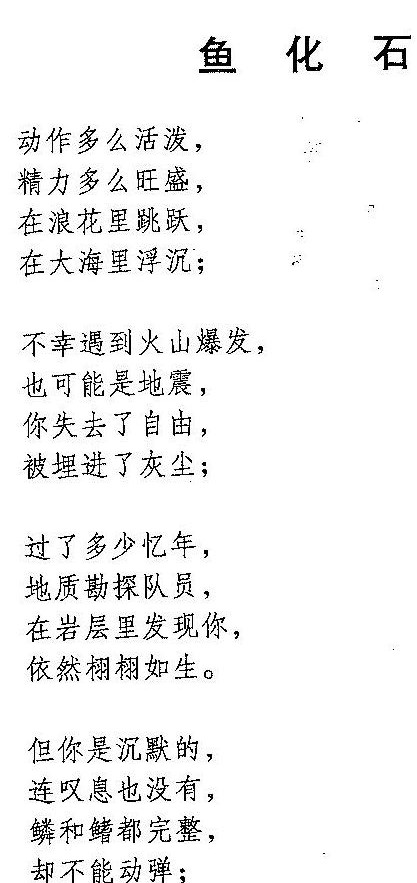 鱼 化 石
动作多么活泼，
精力多么旺盛，
在浪花里跳跃，
在大海里浮沉；
不幸遇到火山爆发，
也可能是地震，
你失去了自由，
被埋进了灰尘；
过了多少忆年，
地质勘探队员，
在岩层里发现你，
依然栩栩如生。
但你是沉默的，
连叹息也没有，
鳞和鳍都完整，
却不能动弹；